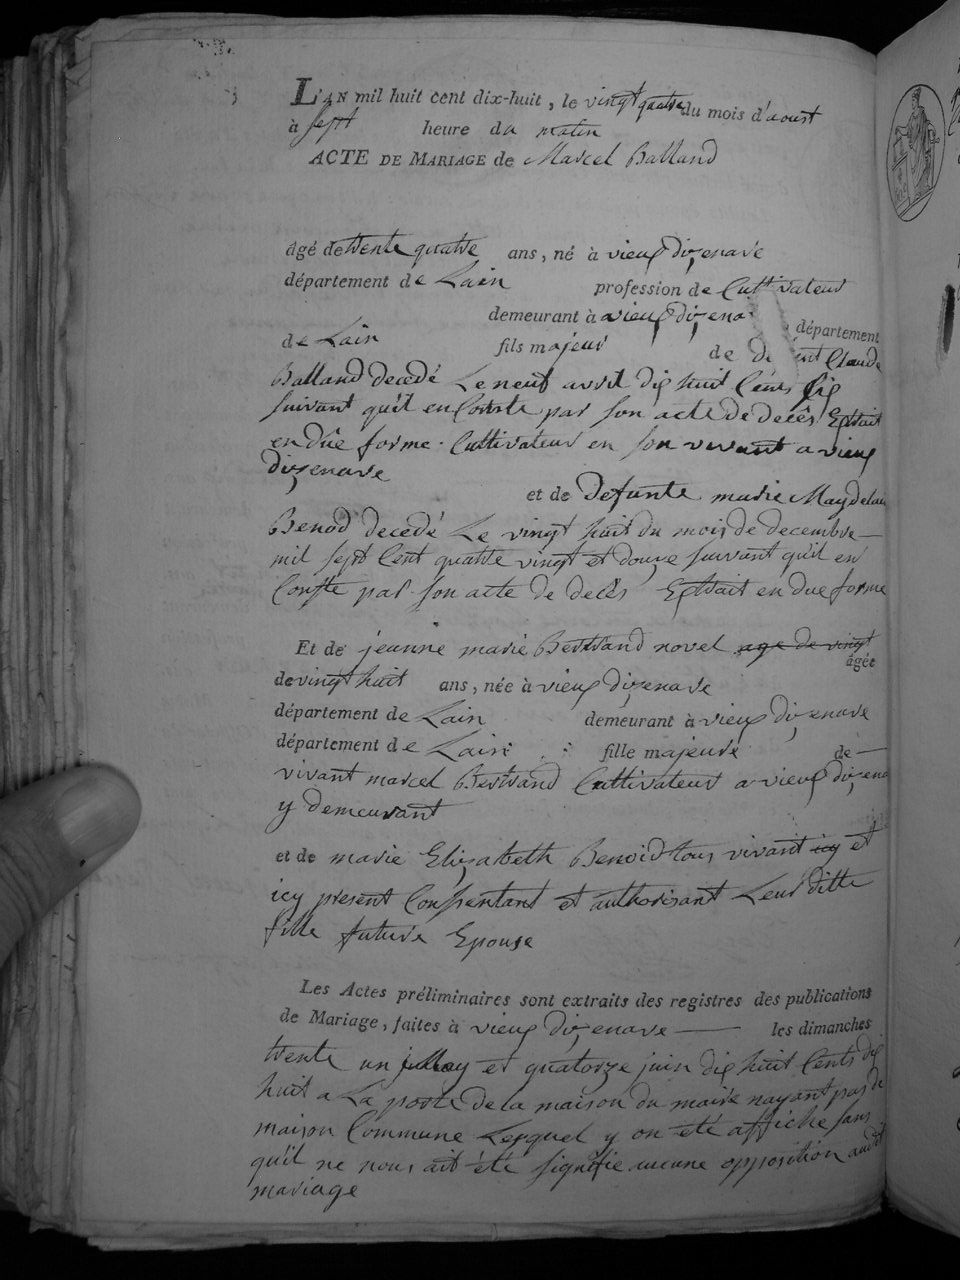 L'AN mil huit cent dix-huit, le vingt quatre du mois d'aoust
à sept heure du matin
ACTE DE MARIAGE de Marcel Balland
âgé de trente quatre ans, né à vieux dizenave
département de Lain profession de Cultivateur
demeurant à vieux dizena département
de Lain fils majeur de de Claude
Balland decedé Le neuf avril dix huit Cents six
suivant qu'il en Conste par son acte de decès Extrait
en dûe forme. Cultivateur en son vivant a vieux
dizenave
et de defunte marie Magdelai
Benod decedé Le vingt huit du mois de decembre
mil sept Cent quatre vingt et douze suivant qu'il en
Conste par son acte de decès Extrait en due forme
Et de jeanne marie Bertrand novel age de vingt
âgée
de vingt huit ans, née à vieux dizenave
département de Lain demeurant à vieux dizenave
département de Lain fille majeure de
vivant marcel Bertrand Cultivateur a vieux dizena
y demeurant
et de marie Elizabeth Benoid tous vivant icy et
icy present Consentant et authorisant Leur ditte
fille future Epouse
Les Actes préliminaires sont extraits des registres des publications
de Mariage, faites à vieux dizenave les dimanches
trente un may et quatorze juin dix huit Cents dix
huit a La porte de la maison du maire nayant pas de
maison Commune Lesquel y on été affiche sans
qu'il ne nous ait été signifie aucune opposition audit
mariage